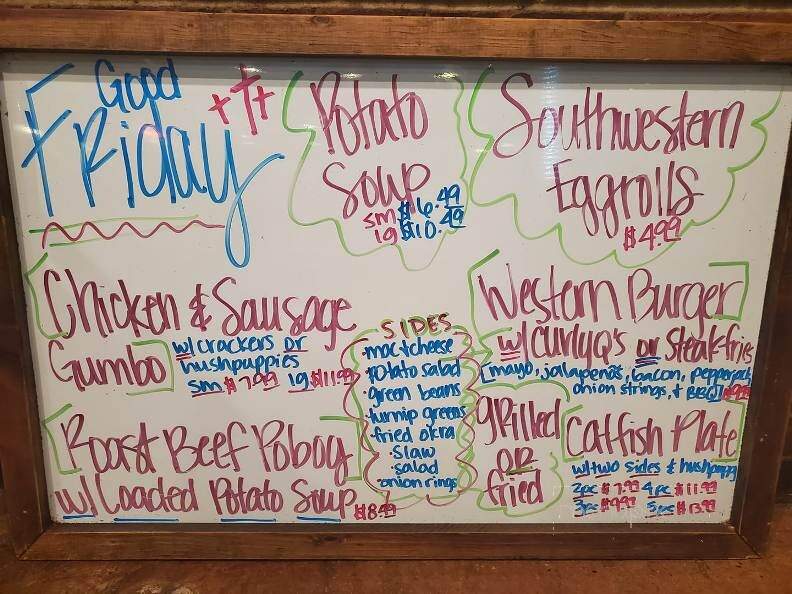 Good
Friday
Potato
Soup
sm $6.49
lg $10.49
Southwestern
Eggrolls
$4.99
Chicken & Sausage
Gumbo
w/crackers or
hushpuppies
sm $7.99 lg $11.99
SIDES
mac+cheese
potato salad
green beans
turnip greens
fried okra
slaw
salad
onion rings
Western Burger
w/curlyq's or steak fries
[mayo, jalapeños, bacon, pepperjack,
onion strings, + BBQ]
Roast Beef Poboy
w/Loaded Potato Soup $8.99
grilled
OR
fried
Catfish Plate
w/two sides & hushpuppy
2pc $7.99 4pc $11.99
3pc $9.99 5pc $13.99